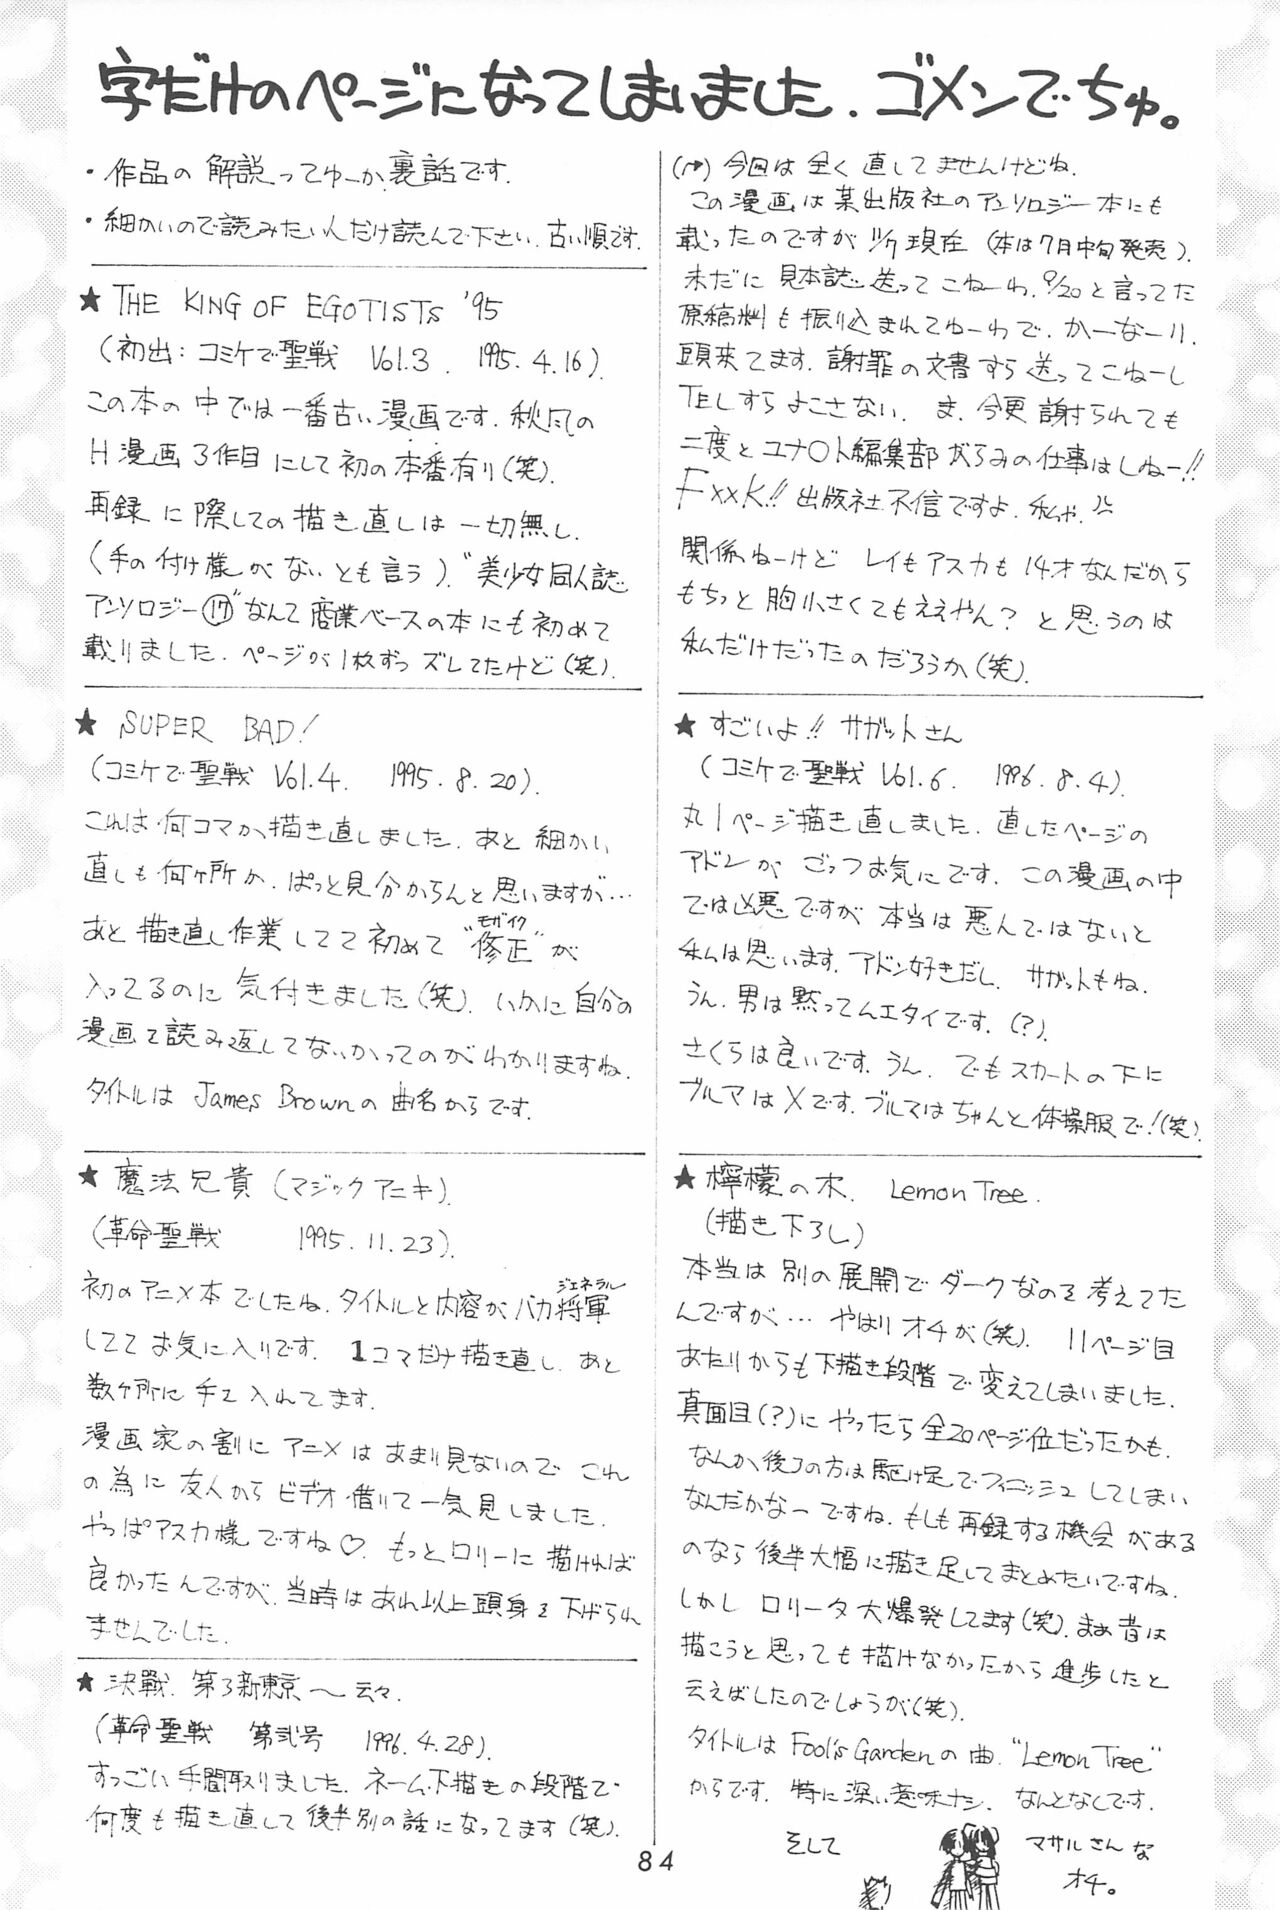 字だけのページになってしまいました. ゴメンでちゅ。
・作品の解説ってゆーか、裏話です.
・細かいので読みたい人だけ読んで下さい. 古い順です.
★ THE KING OF EGOTISTS '95
(初出: コミケで聖戦 Vol.3. 1995.4.16).
この本の中では一番古い漫画です. 秋風の
H漫画3作目にして初の本番有り(笑).
再録に際しての描き直しは一切無し.
(手の付け様がないとも言う). “美少女同人誌
アンソロジー⑰”なんて商業ベースの本にも初めて
載りました. ページが1枚ずつズレてたけど(笑).
★ SUPER BAD!
(コミケで聖戦 Vol.4. 1995.8.20).
これは何コマか描き直しました. あと細かい
直しも何ヶ所か. ぱっと見分からんと思いますが…
あと描き直し作業してて初めて“修正”が
モザイク
入ってるのに気付きました(笑). いかに自分の
漫画を読み返してないかってのがわかりますね.
タイトルは James Brownの曲名からです.
★ 魔法兄貴 (マジックアニキ).
(革命聖戦 1995.11.23).
初のアニメ本でしたね. タイトルと内容がバカ将軍
ジェネラル
しててお気に入りです. 1コマだけ描き直し. あと
数ヶ所に手を入れてます.
漫画家の割にアニメはあまり見ないので これ
の為に友人からビデオ借りて一気見しました.
やっぱアスカ様ですね♡. もっとロリーに描ければ
良かったんですが、当時はあれ以上頭身を下げられ
ませんでした.
★ 決戦. 第3新東京〜云々.
(革命聖戦 第弐号 1996.4.28).
すっごい手間取りました. ネーム・下描きの段階で
何度も描き直して後半別の話になってます(笑).
(→) 今回は全く直してませんけどね.
この漫画は某出版社のアンソロジー本にも
載ったのですが 11/9現在 (本は7月中旬発売).
未だに見本誌送ってこねーわ. 9/20と言ってた
原稿料も振り込まれてねーわで. かーなーり.
頭来てます. 謝罪の文書すら送ってこねーし
TELすらよこさない. ま、今更謝られても
二度とユナ○ト編集部がらみの仕事はしねー!!
FxxK!! 出版社不信ですよ. 私ゃ.
関係ねーけど レイもアスカも14才なんだから
もちっと胸小さくてもええやん? と思うのは
私だけだったのだろうか(笑).
★ すごいよ!! サガットさん
(コミケで聖戦 Vol.6. 1996.8.4).
丸1ページ描き直しました. 直したページの
アドンがごっつお気にです. この漫画の中
では凶悪ですが 本当は悪人ではないと
私は思います. アドン好きだし. サガットもね.
うん. 男は黙ってムエタイです. (?).
さくらは良いです. うん. でもスカートの下に
ブルマは×です. ブルマはちゃんと体操服で!(笑).
★ 檸檬の木. Lemon Tree.
(描き下ろし)
本当は別の展開でダークなのを考えてた
んですが… やはりオチが(笑). 11ページ目
あたりからも下描き段階で変えてしまいました.
真面目(?)にやったら全20ページ位だったかも.
なんか後ろの方は駆け足でフィニッシュしてしまい
なんだかなーですね. もしも再録する機会がある
のなら後半大幅に描き足してまとめたいですね.
しかし ロリータ大爆発してます(笑). まぁ昔は
描こうと思っても描けなかったから進歩したと
云えばしたのでしょうが(笑).
タイトルは Fool's Gardenの曲. “Lemon Tree”
からです. 特に深い意味ナシ. なんとなしです.
そして
マサルさんな
オチ。
84